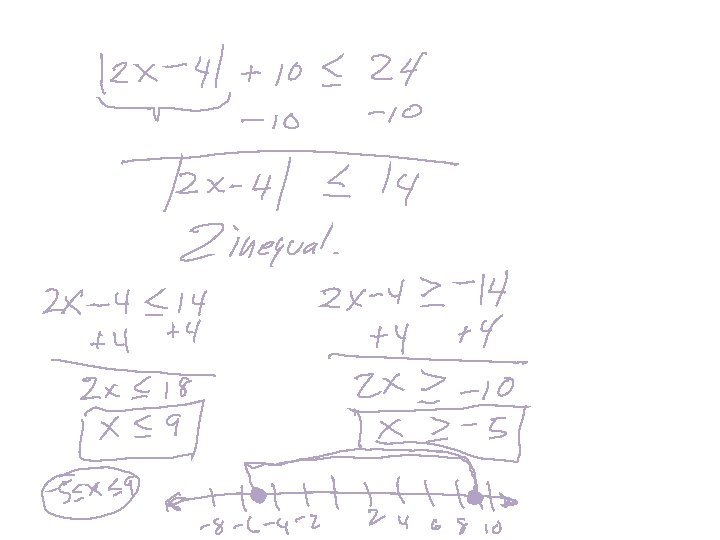 |2x-4| + 10 ≤ 24
-10 -10
|2x-4| ≤ 14
2 inequal.
2x-4 ≤ 14
+4 +4
2x ≤ 18
x ≤ 9
2x-4 ≥ -14
+4 +4
2x ≥ -10
x ≥ -5
-5≤x≤9
-8 -6 -4 -2 2 4 6 8 10